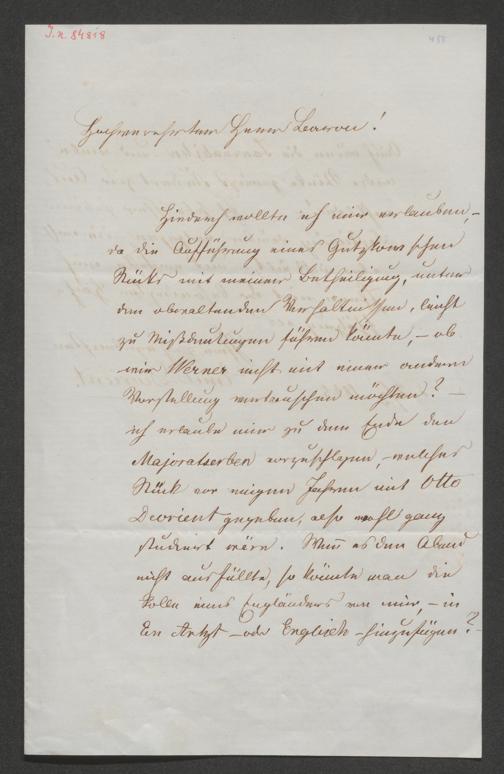 J.N. 84818
458
Hochverehrtester Herr Baron!
Hiedurch wollte ich mir erlauben, –
da die Aufführung eines Gutzkow'schen
Stücks mit meiner Betheiligung, unter
den obwaltenden Verhältnissen, leicht
zu Misdeutungen führen könnte, – ob
wir Werner nicht mit einer andern
Vorstellung vertauschen möchten? –
ich erlaube mir zu dem Ende den
Majoratserben vorzuschlagen, – welches
Stück vor einigen Jahren mit Otto
Devrient gegeben, also wohl ganz
studiert wäre. Wenn es den Abend
nicht ausfüllte, so könnte man die
Rolle eines Engländers von mir, – in
Ein Arzt – oder Englisch – hinzufügen? –